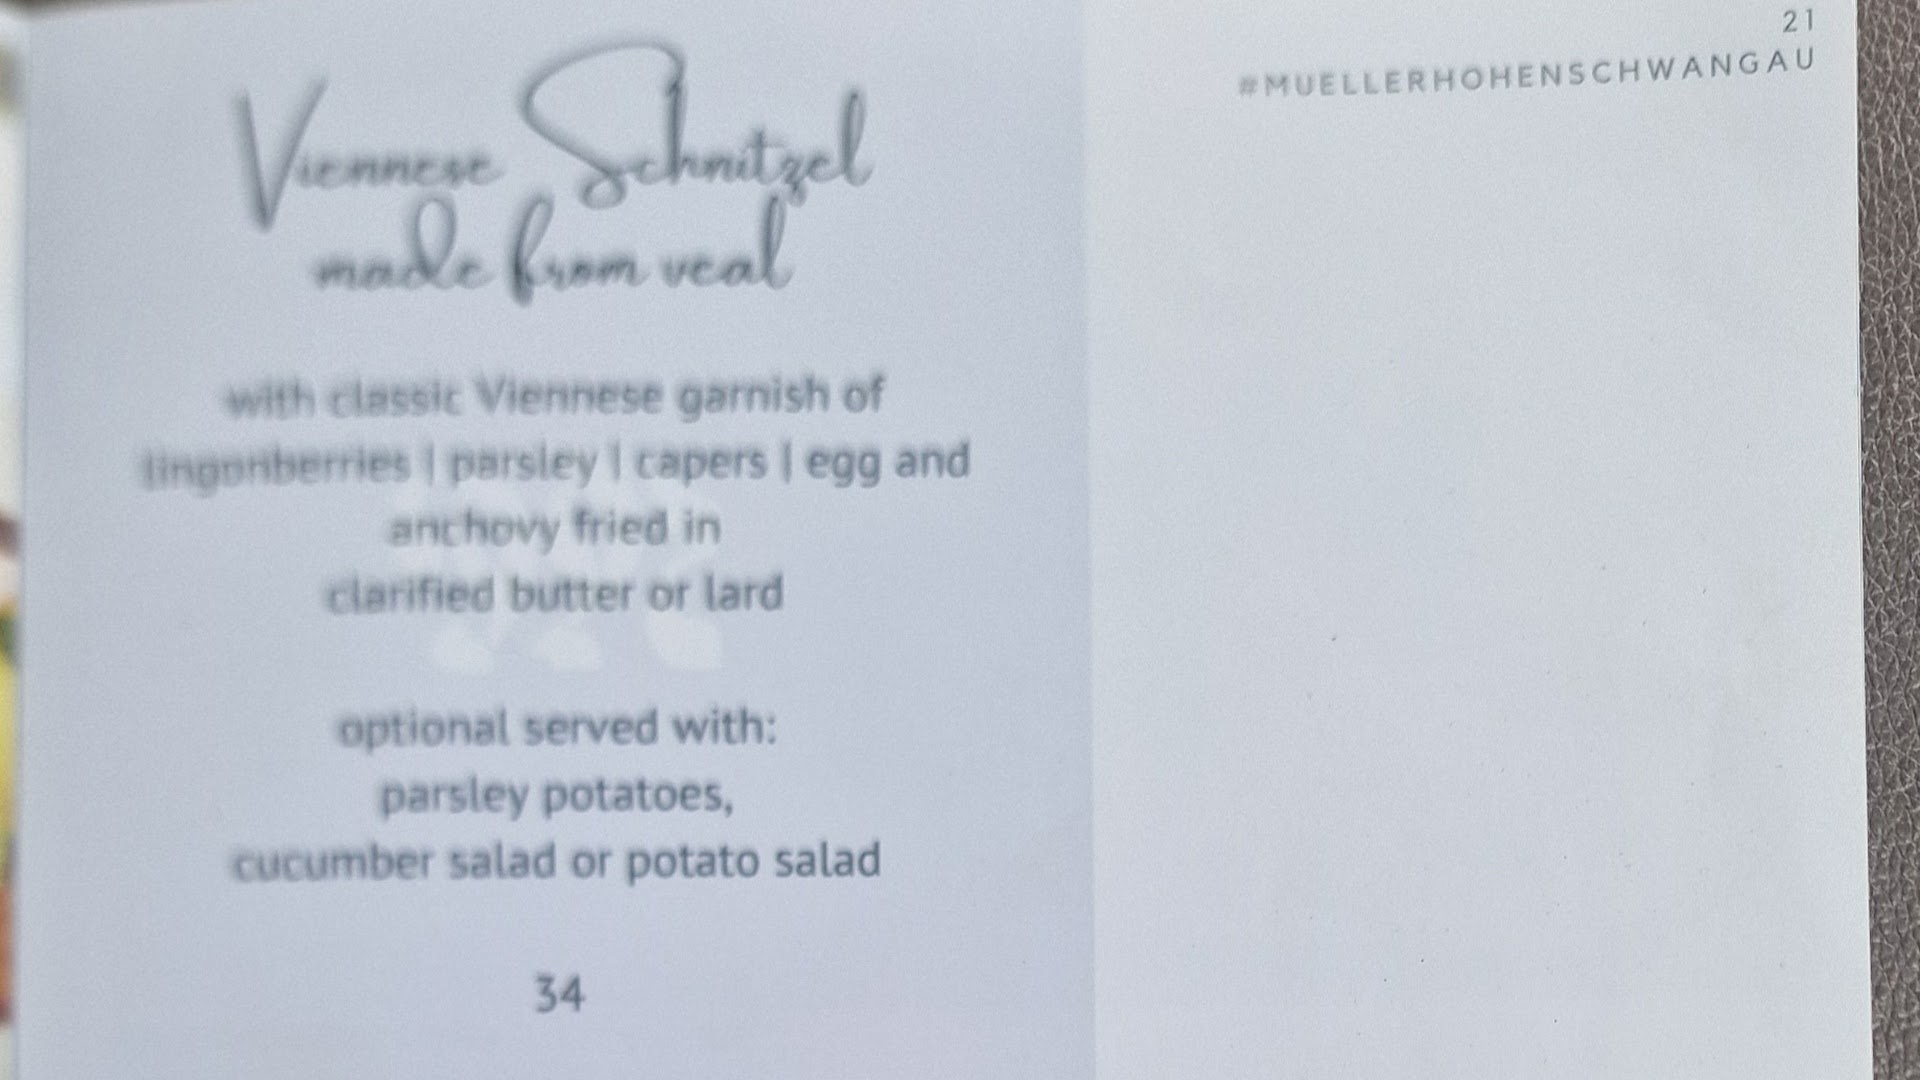 Viennese Schnitzel
made from veal
with classic Viennese garnish of
lingonberries | parsley | capers | egg and
anchovy fried in
clarified butter or lard
optional served with:
parsley potatoes,
cucumber salad or potato salad
34
21
#MUELLERHOHENSCHWANGAU